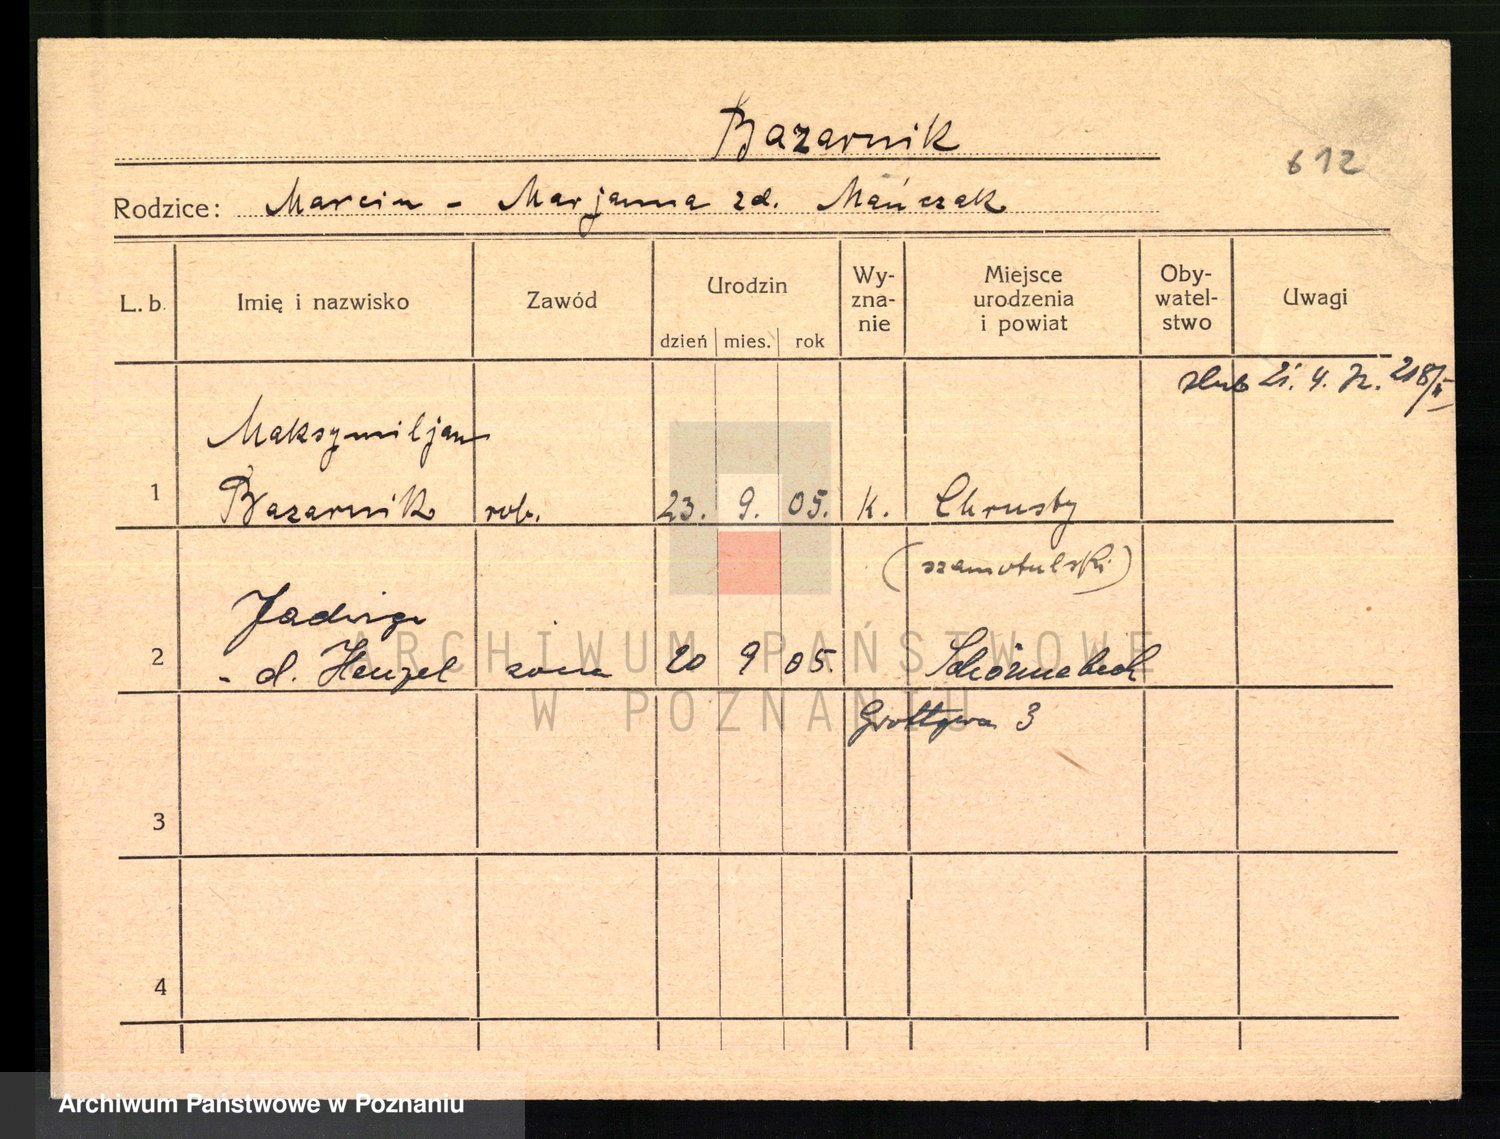 Bazarnik
612
Rodzice: Marcin - Marjanna zd. Mańczak
L. b. Imię i nazwisko Zawód Urodzin dzień mies. rok Wy-zna-nie Miejsce urodzenia i powiat Oby-watel-stwo Uwagi
ślub 21. 4. 218/II
Maksymiljan
1 Bazarnik rob. 23. 9. 05. k. Chrusty
(szamotulski)
Jadwiga
2 - d. Henzel żona 20 9 05. Schönnebeck
ARCHIWUM PAŃSTWOWE
W POZNANIU
Grottgera 3
3
4
Archiwum Państwowe w Poznaniu